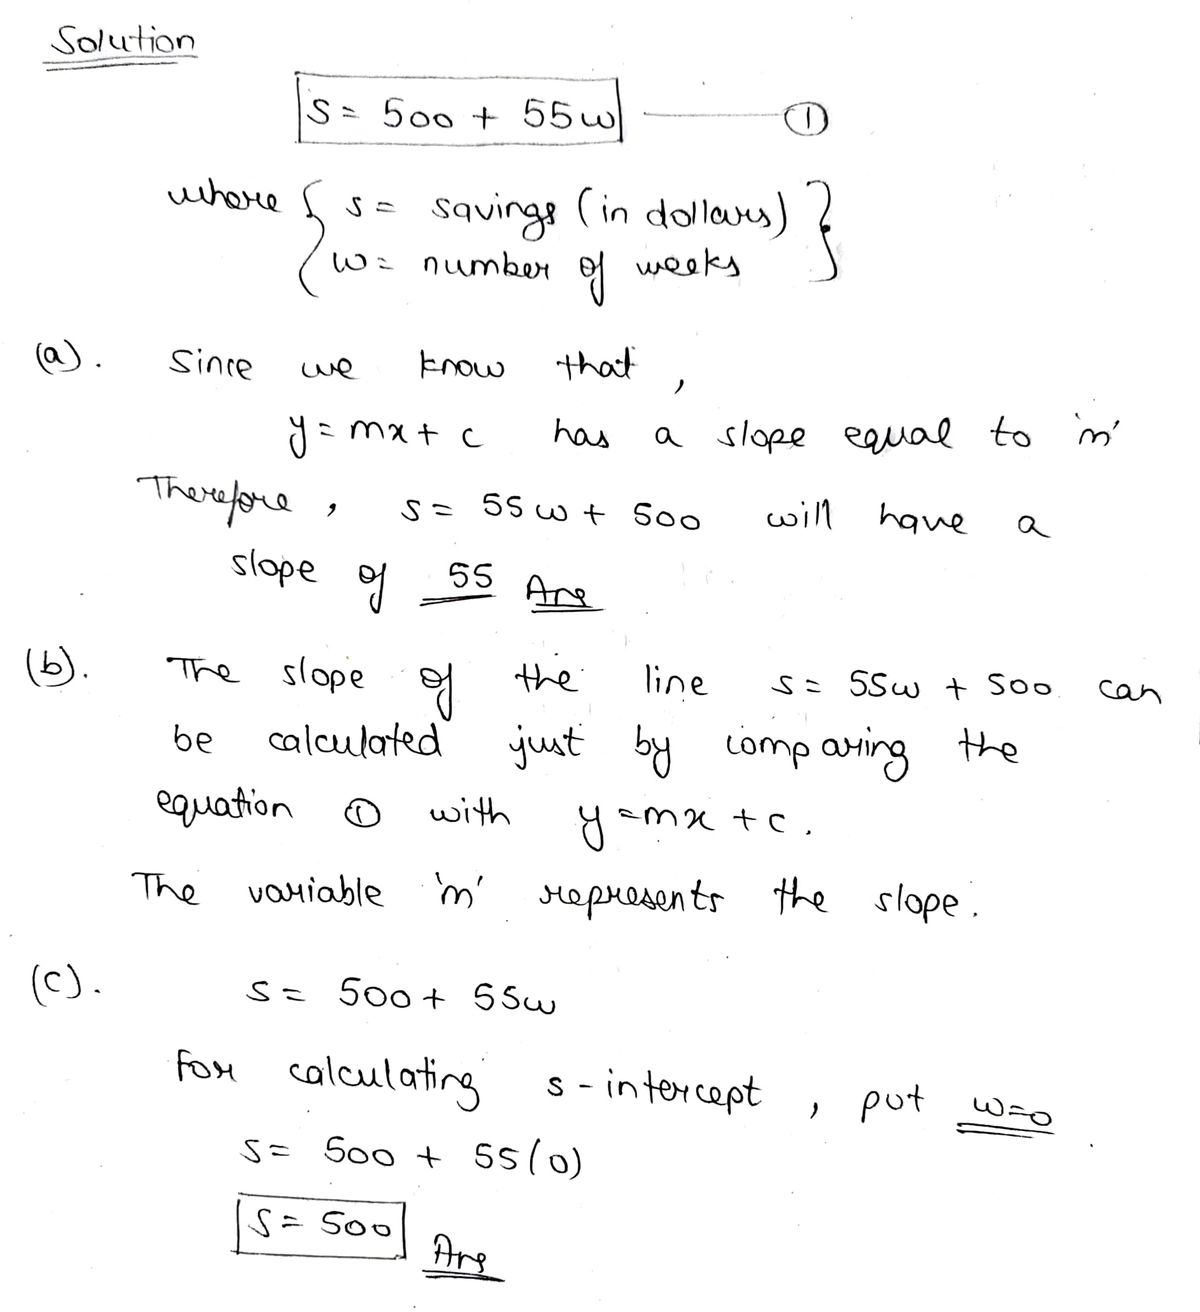 Solution
S = 500 + 55w ——— ①
where { s = savings (in dollars) }
w = number of weeks
(a). Since we know that,
y = mx + c has a slope equal to 'm'
Therefore, s = 55w + 500 will have a
slope of 55 Ans
(b). The slope of the line s = 55w + 500 can
be calculated just by comparing the
equation ① with y = mx + c.
The variable 'm' represents the slope.
(c). s = 500 + 55w
For calculating s-intercept, put w=0.
s = 500 + 55(0)
S = 500 Ans